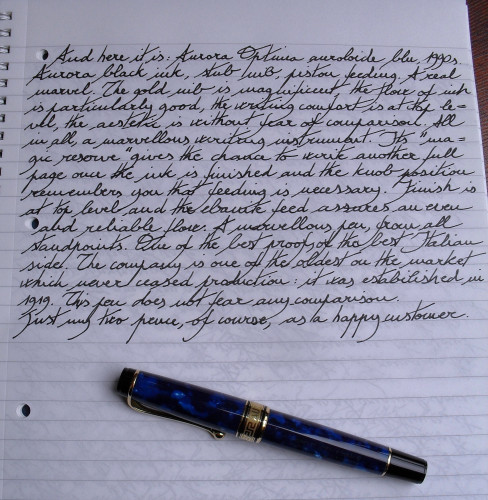 And here it is: Aurora Optima auroloide blu, 1990s.
Aurora black ink, stub nib, piston feeding. A real
marvel. The gold nib is magnificent, the flow of ink
is particularly good, the writing comfort is at top le-
vel, the aestetic is without fear of comparison. All
in all, a marvellous writing instrument. Its "ma-
gic reserve" gives the chance to write another full
page once the ink is finished and the knob position
remembers you that feeding is necessary. Finish is
at top level and the ebanite feed assures an even
and reliable flow. A marvellous pen, from all
standpoints. One of the best proof, on the best Italian
side. The company is one of the oldest on the market
which never ceased production: it was estabilished in
1919. This pen does not fear any comparison.
Just my two pence, of course, as a happy customer.